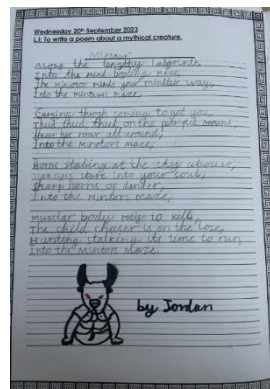 Wednesday 20th September 2023
L.I: To write a poem about a mythical creature.
Along the lengthy labyrinth
Into the mind maze,
The minotor minds your mindless way,
Into the mintours maze.
Coming though coming to get you
Thud, thud, thud on the ground,
Hear his roar all around,
Into the minotors maze,
Horns stabing at the sky above,
eyes stare into your soul,
Sharp horns of danger,
Into the mintor maze,
Muscular body ready to kill,
The child chaser is on the lose,
Hunting stalking its time to run,
Into the mintor maze.
by Jordan